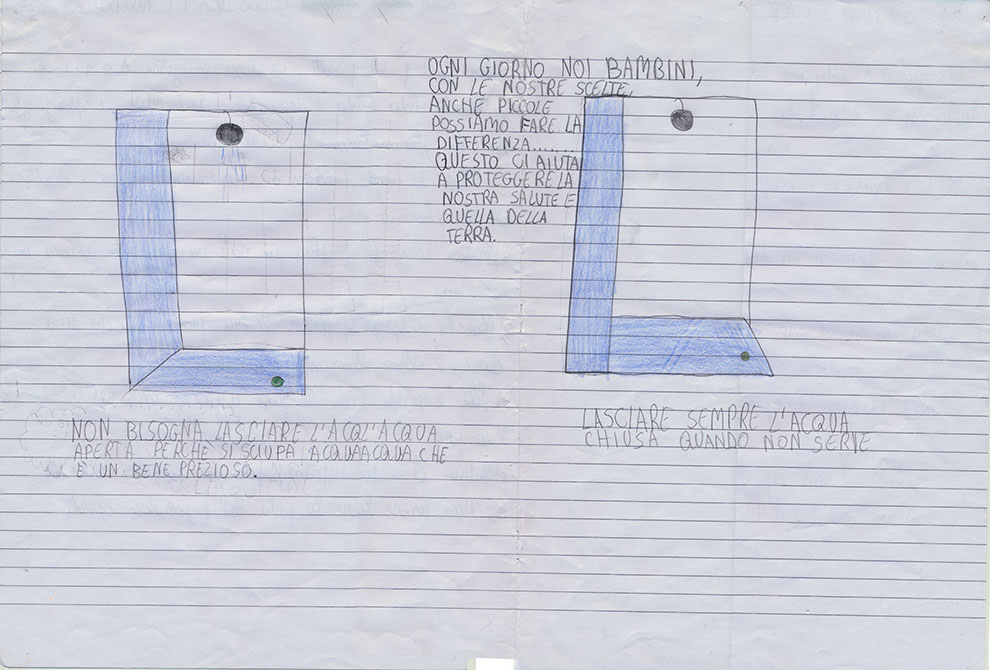 OGNI GIORNO NOI BAMBINI,
CON LE NOSTRE SCELTE,
ANCHE PICCOLE
POSSIAMO FARE LA
DIFFERENZA.......
QUESTO CI AIUTA
A PROTEGGERE LA
NOSTRA SALUTE E
QUELLA DELLA
TERRA.
NON BISOGNA LASCIARE L'ACQL'ACQUA
APERTA PERCHÈ SI SCIUPA ACQUAACQUA CHE
È UN BENE PREZIOSO.
LASCIARE SEMPRE L'ACQUA
CHIUSA QUANDO NON SERVE